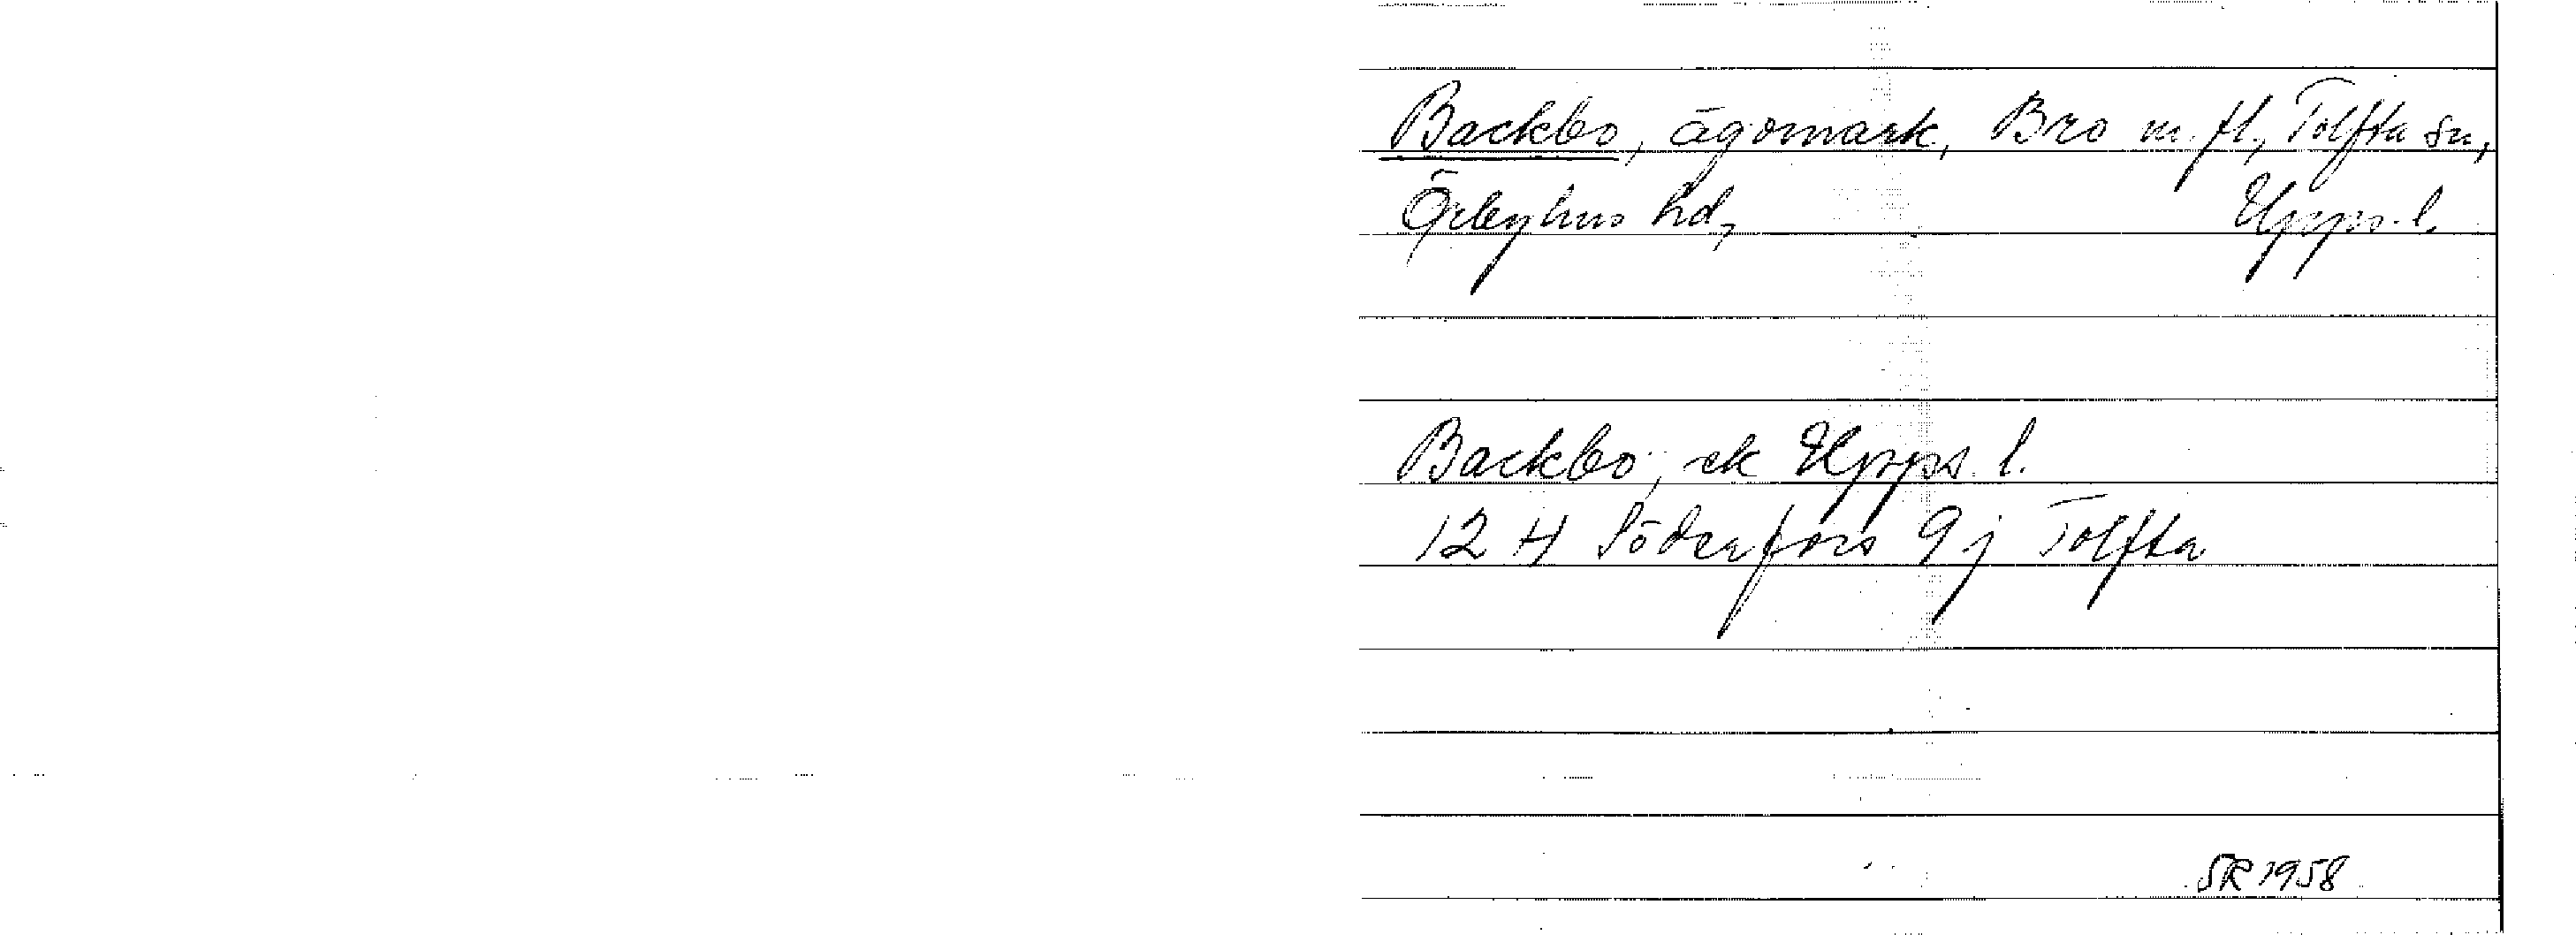 Backbo, ägomark, Bro m. fl., Tolfta sn,
Örbyhus hd, Upps. l.
Backbo, ek Upps. l.
12 H Söderfors 9 j Tolfta
SR 1958